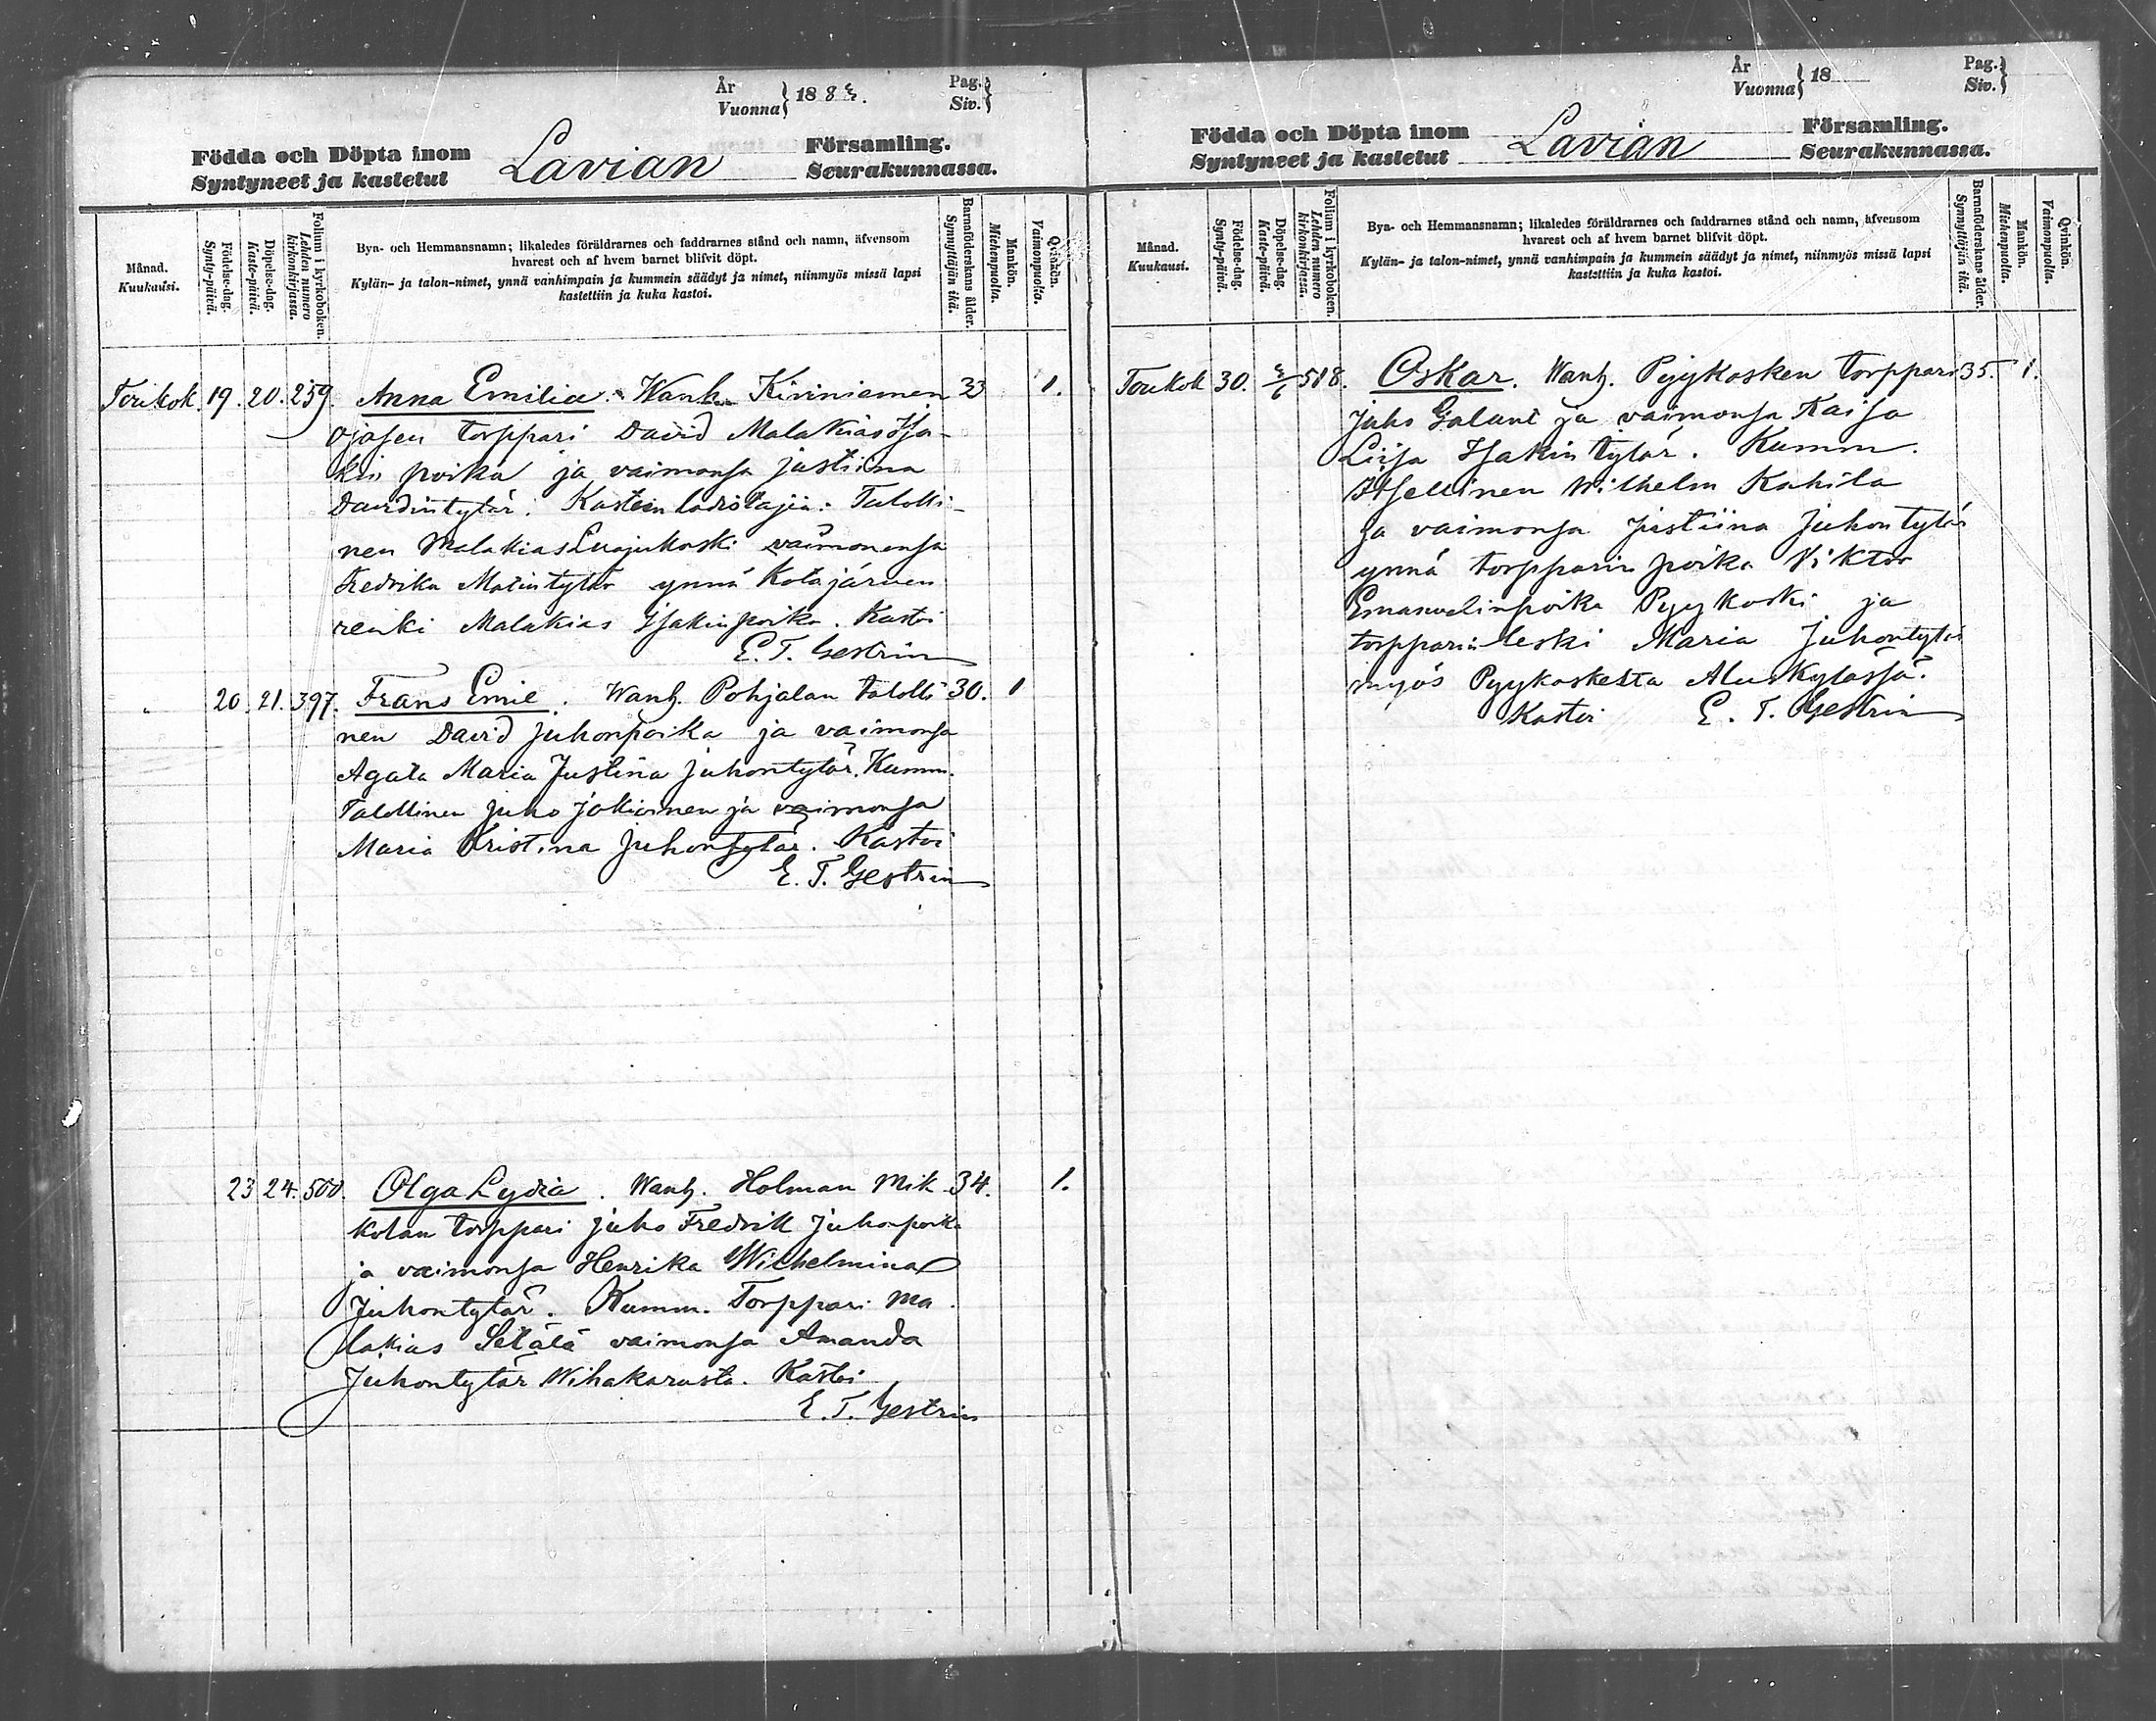 År
Vuonna } 1883.
Pag.
Siv. }
Födda och Döpta inom
Syntyneet ja kastetut
Lavian
Församling.
Seurakunnassa.
Månad.
Kuukausi.
Födelse-dag.
Synty-päivä.
Döpelse-dag.
Kaste-päivä.
Folium i kyrkoboken.
Lehden numero
kirkonkirjassa.
Bya- och Hemmansnamn; likaledes föräldrarnes och faddrarnes stånd och namn, äfvensom
hvarest och af hvem barnet blifvit döpt.
Kylän- ja talon-nimet, ynnä vanhimpain ja kummein säädyt ja nimet, niinmyös missä lapsi
kastettiin ja kuka kastoi.
Barnaföderskans ålder.
Synnyttäjän ikä.
Mankön.
Miehenpuolia.
Qvinkön.
Vaimonpuolia.
Toukok. 19. 20. 259. Anna Emilia. Wanh. Kiviniemen 33 1.
Ojasen torppari David Malakias Isa-
kin poika ja vaimonsa Justina
Davidintytär. Kasteen todistajia: Talolli-
nen Malakias Luojukoski vaimonensa
Fredrika Matintytär ynnä Kotajärven
renki Malakias Isakinpoika. Kastoi
E. T. Gestrin
" 20. 21. 397. Frans Emil. Wanh. Pohjalan talolli 30. 1
nen David Juhonpoika ja vaimonsa
Agata Maria Justina Juhontytär. Kumm.
Talollinen Juho Jokioinen ja vaimonsa
Maria Kristina Juhontytär. Kastoi
E. T. Gestrin
23 24. 500. Olga Lydia. Wanh. Holman Mik 34. 1.
kolan torppari Juho Fredrik Juhonpoika
ja vaimonsa Henrika Wilhelmina
Juhontytär. Kumm. Torppari Ma
lakias Setälä vaimonsa Amanda
Juhontytär Wihakarusta. Kastoi
E. T. Gestrin
År
Vuonna } 18
Pag.
Siv. }
Födda och Döpta inom
Syntyneet ja kastetut
Lavian
Församling.
Seurakunnassa.
Månad.
Kuukausi.
Födelse-dag.
Synty-päivä.
Döpelse-dag.
Kaste-päivä.
Folium i kyrkoboken.
Lehden numero
kirkonkirjassa.
Bya- och Hemmansnamn; likaledes föräldrarnes och faddrarnes stånd och namn, äfvensom
hvarest och af hvem barnet blifvit döpt.
Kylän- ja talon-nimet, ynnä vanhimpain ja kummein säädyt ja nimet, niinmyös missä lapsi
kastettiin ja kuka kastoi.
Barnaföderskans ålder.
Synnyttäjän ikä.
Mankön.
Miehenpuolia.
Qvinkön.
Vaimonpuolia.
Toukok 30. 3/6 518. Oskar. Wanh. Pyykosken torppari 35. 1.
Juho Galant ja vaimonsa Kaisa
Liisa Isakintytär. Kumm.
Itsellinen Wilhelm Kahila
ja vaimonsa Justiina Juhontytär
ynnä torpparin poika Viktor
Emanuelinpoika Pyykoski ja
torpparin leski Maria Juhontytär
myös Pyykoskesta Aluskylässä.
Kastoi E. T. Gestrin